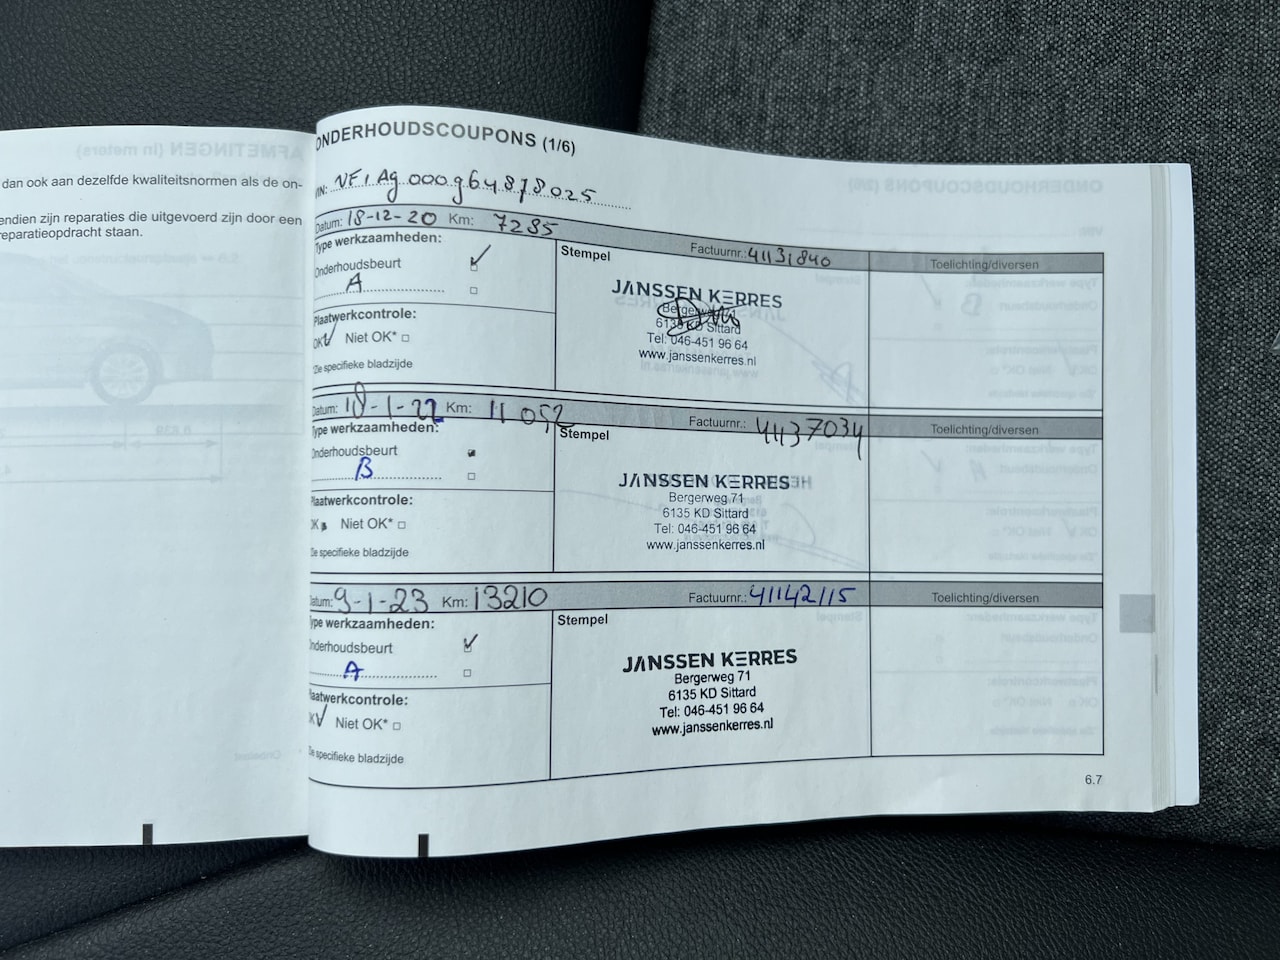 dan ook aan dezelfde kwaliteitsnormen als de on-
endien zijn reparaties die uitgevoerd zijn door een
eparatieopdracht staan.
ONDERHOUDSCOUPONS (1/6)
VIN: VF1Ag000g64878025
Datum: 18-12-20 Km: 7285 Factuurnr.: 41131840 Toelichting/diversen
Type werkzaamheden:
Onderhoudsbeurt
A
Plaatwerkcontrole:
OK Niet OK*
*Zie specifieke bladzijde
Stempel
JANSSEN KERRES
Bergerweg 71
6135 KD Sittard
Tel: 046-451 96 64
www.janssenkerres.nl
Datum: 18-1-22 Km: 11052 Factuurnr.: 41137034 Toelichting/diversen
Type werkzaamheden:
Onderhoudsbeurt
B
Plaatwerkcontrole:
OK Niet OK*
Zie specifieke bladzijde
Stempel
JANSSEN KERRES
Bergerweg 71
6135 KD Sittard
Tel: 046-451 96 64
www.janssenkerres.nl
Datum: 9-1-23 Km: 13210 Factuurnr.: 41142115 Toelichting/diversen
Type werkzaamheden:
Onderhoudsbeurt
A
Plaatwerkcontrole:
OK Niet OK*
Zie specifieke bladzijde
Stempel
JANSSEN KERRES
Bergerweg 71
6135 KD Sittard
Tel: 046-451 96 64
www.janssenkerres.nl
6.7